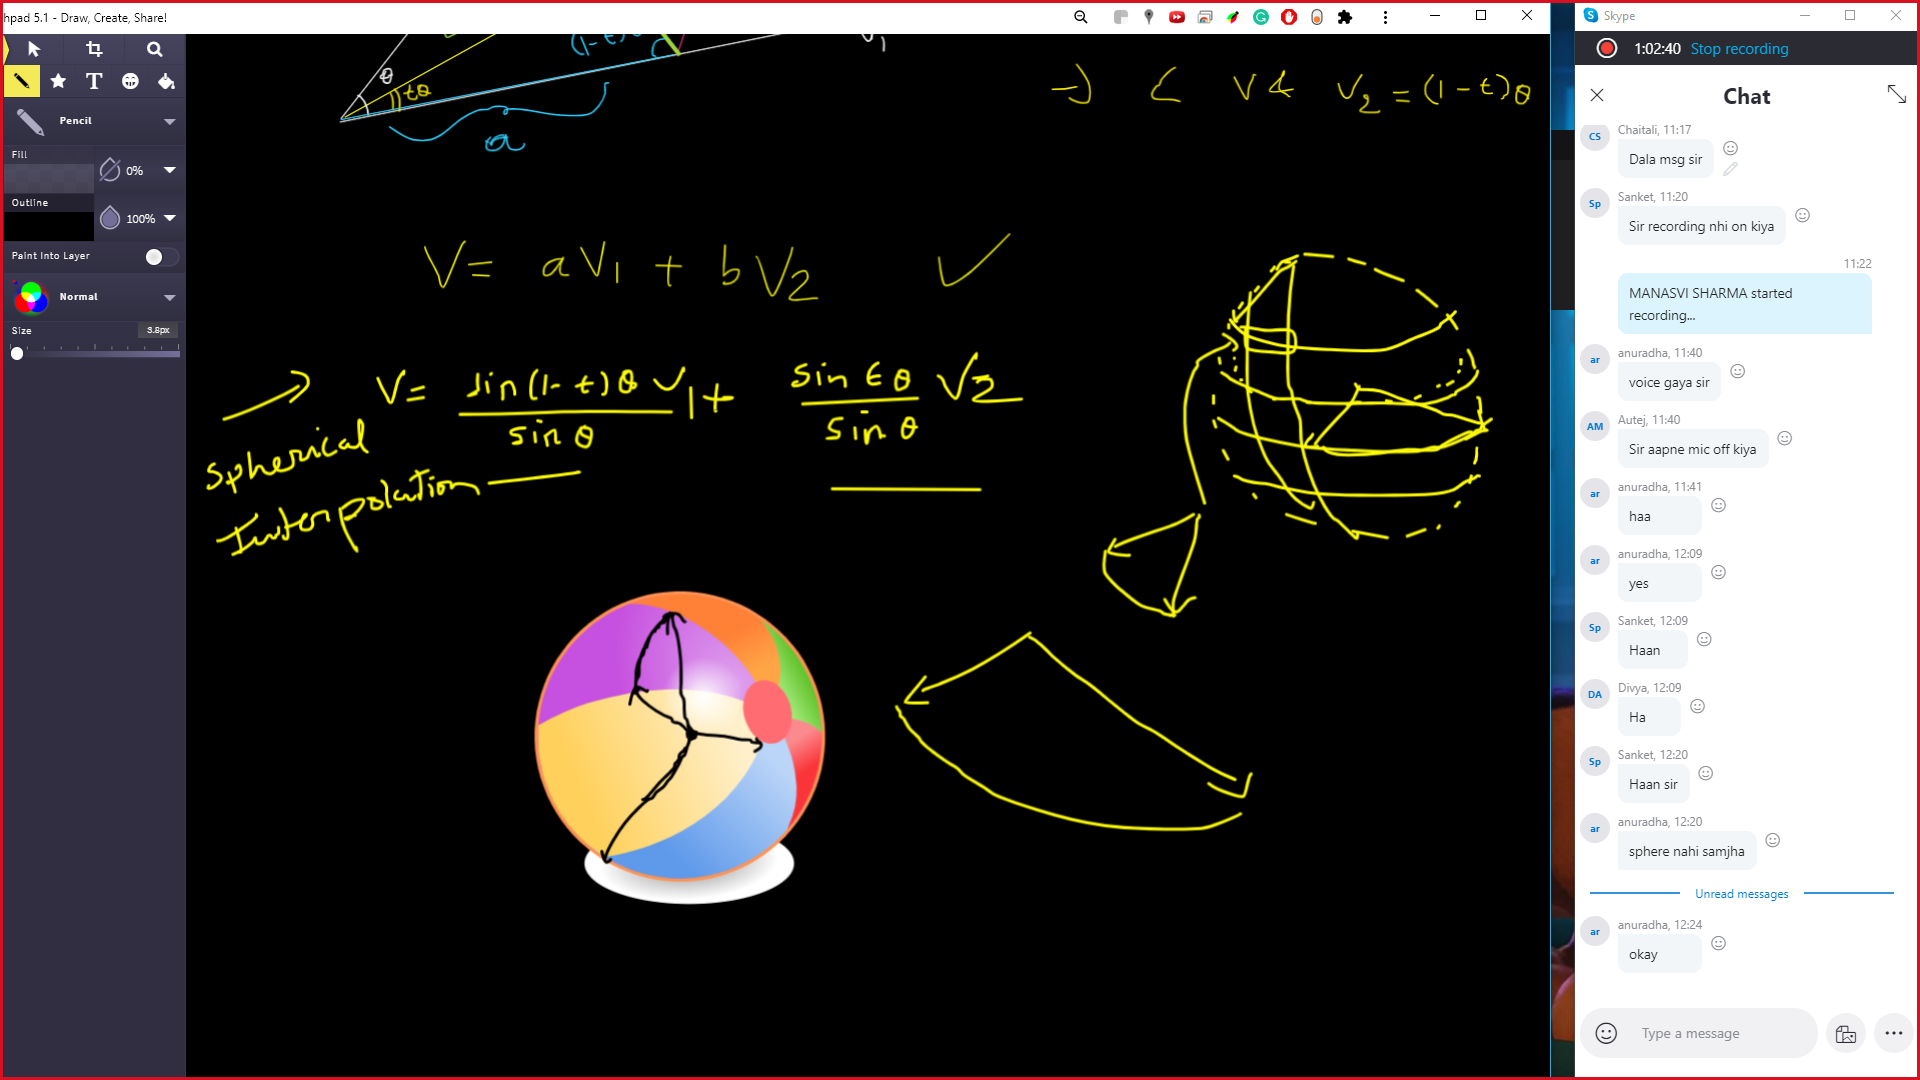 hpad 5.1 - Draw, Create, Share!
Pencil
Fill
0%
Outline
100%
Paint Into Layer
Normal
Size
3.8px
θ
tθ
a
V1
→ < V & V2 = (1-t)θ
V = a V1 + b V2 ✓
→ V = sin(1-t)θ / sin θ V1 + sin tθ / sin θ V2
Spherical
Interpolation
Skype
1:02:40 Stop recording
Chat
CS
Chaitali, 11:17
Dala msg sir
Sp
Sanket, 11:20
Sir recording nhi on kiya
11:22
MANASVI SHARMA started
recording...
ar
anuradha, 11:40
voice gaya sir
AM
Autej, 11:40
Sir aapne mic off kiya
ar
anuradha, 11:41
haa
ar
anuradha, 12:09
yes
Sp
Sanket, 12:09
Haan
DA
Divya, 12:09
Ha
Sp
Sanket, 12:20
Haan sir
ar
anuradha, 12:20
sphere nahi samjha
Unread messages
ar
anuradha, 12:24
okay
Type a message